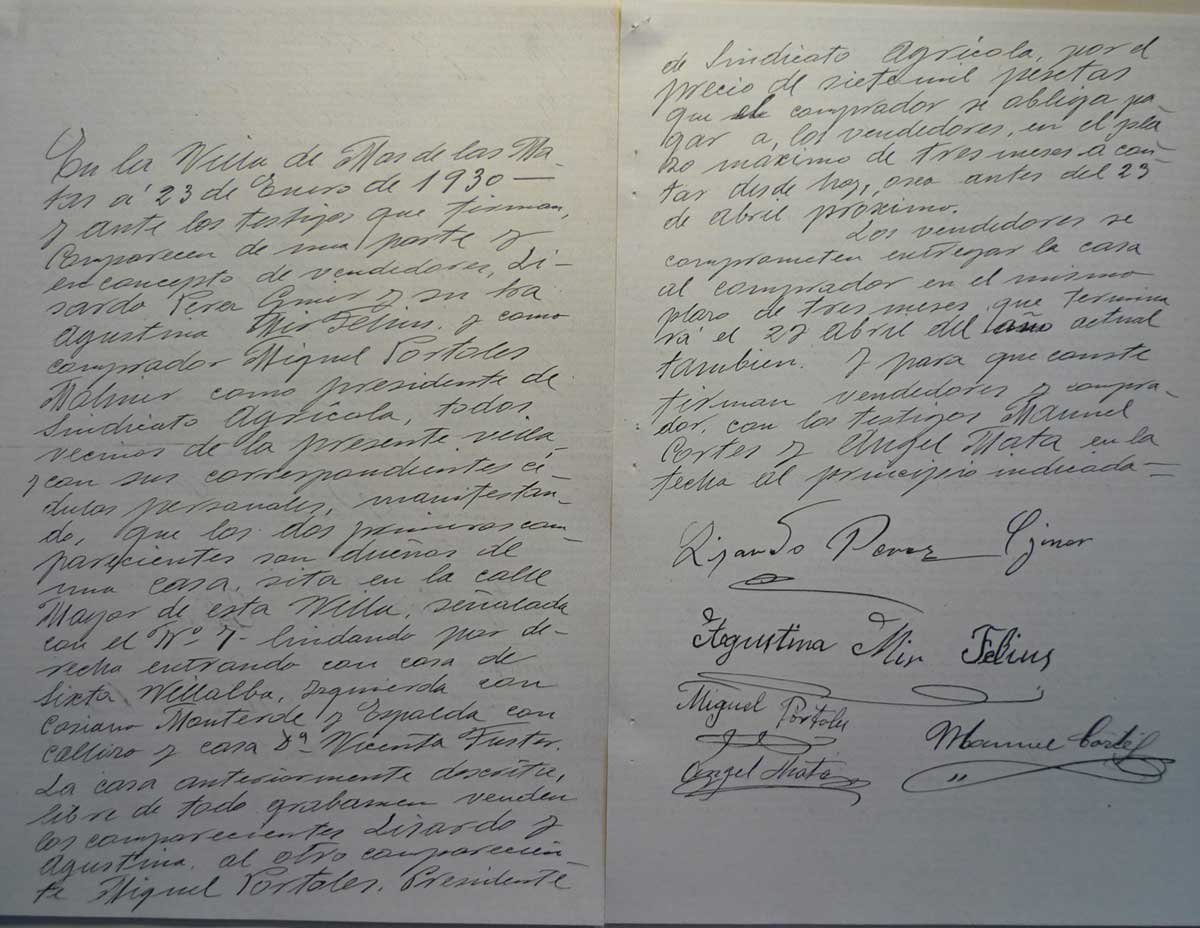 En la Villa de Mas de las Ma-
tas á 23 de Enero de 1930 —
y ante los testigos que firman,
Comparecen de una parte y
en concepto de vendedores, Li-
sardo Perez Giner y su tia
Agustina Mir Felius. y como
comprador Miguel Portoles
Moliner como presidente de
Sindicato Agrícola, todos
vecinos de la presente villa
y con sus correspondientes cé-
dulas personales, manifestan-
do, que los dos primeros com
parecientes son dueños de
una casa, sita en la calle
Mayor de esta Villa, señalada
con el Nº 7- lindando por de-
recha entrando con casa de
Sixta Villalba, Izquierda con
Casiano Monterde y Espalda con
callizo y casa Dª Vicenta Fuster.
La casa anteriormente descrita,
libre de todo grabamen venden
los comparecientes Lisardo y
Agustina, al otro comparecien-
te Miguel Portoles, Presidente
de Sindicato Agrícola, por el
precio de siete mil pesetas
que el comprador se obliga pa-
gar a, los vendedores, en el pla-
zo maximo de tres meses á con-
tar desde hoy, osea antes del 23
de abril próximo.
Los vendedores se
comprometen entregar la casa
al comprador en el mismo
plazo de tres meses, que termina
rá el 23 Abril del año actual
tambien. Y para que conste
firman vendedores y compra-
dor, con los testigos Manuel
Cortes y Angel Mata en la
fecha al principio indicada —
Lisardo Perez Giner
Agustina Mir Felius
Miguel Portoles
Manuel Cortés
Angel Mata